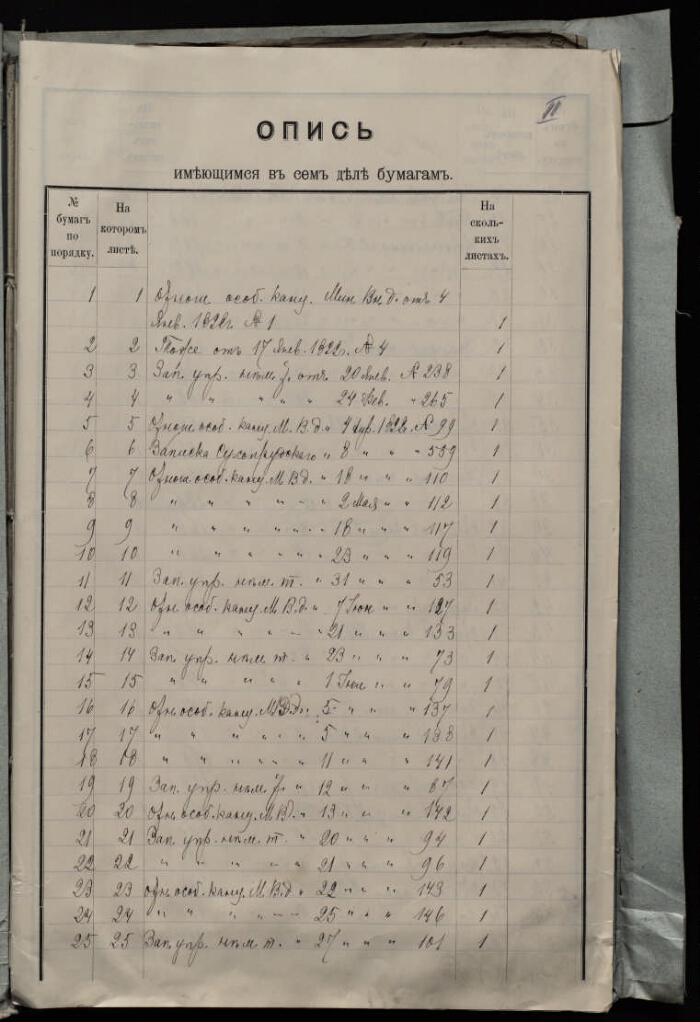 II
ОПИСЬ
имѣющимся въ семъ дѣлѣ бумагамъ.
№ бумагъ по порядку. На которомъ листѣ. На сколь-кихъ листахъ.
1 1 Отнош особ. канц. Мин Вн. д. отъ 4
Янв. 1822г. № 1 1
2 2 Тоже отъ 17 Янв. 1822г. № 4 1
3 3 Зап. упр. отъ 20 Янв. № 238 1
4 4 " " " " " 24 Фев. " 265 1
5 5 Отнош особ. канц. М. В. д. " 4 Апр. 1822г. № 99 1
6 6 Записка " 8 " " " 539 1
7 7 Отнош особ. канц. М. В. д. " 18 " " " 110 1
8 8 " " " " " 2 Мая " " 112 1
9 9 " " " " " 18 " " " 117 1
10 10 " " " " " 23 " " " 119 1
11 11 Зап. упр. " 31 " " " 53 1
12 12 Отн. особ. канц. М. В. д. " 7 Iюн " " 127 1
13 13 " " " " " 21 " " " 133 1
14 14 Зап. упр. " 23 " " " 73 1
15 15 " " " " " 1 Iюл " " 79 1
16 16 Отн. особ. канц. М. В. д. " 5 " " " 137 1
17 17 " " " " " 5 " " " 138 1
18 18 " " " " " 11 " " " 141 1
19 19 Зап. упр. " 12 " " " 87 1
20 20 Отн. особ. канц. М. В. д. " 13 " " " 142 1
21 21 Зап. упр. " 20 " " " 94 1
22 22 " " " " " 21 " " " 96 1
23 23 Отн. особ. канц. М. В. д. " 22 " " " 143 1
24 24 " " " " " 25 " " " 146 1
25 25 Зап. упр. " 27 " " " 101 1